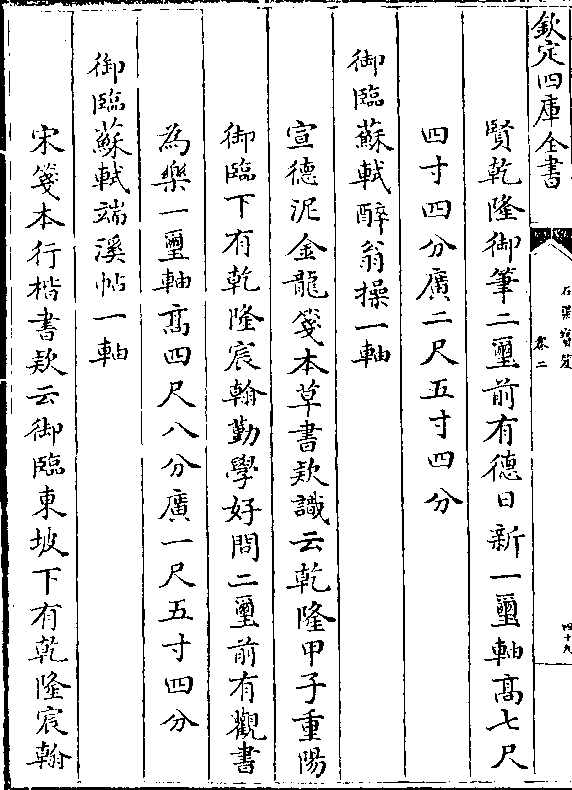 欽定四庫全書
石渠寶笈
卷二
四十九
賢乾隆御筆二璽前有德日新一璽軸髙七尺
四寸四分廣二尺五寸四分
御臨蘇軾醉翁操一軸
宣德泥金龍箋本草書款識云乾隆甲子重陽
御臨下有乾隆宸翰勤學好問二璽前有觀書
為樂一璽軸髙四尺八分廣一尺五寸四分
御臨蘇軾端溪帖一軸
宋箋本行楷書款云御臨東坡下有乾隆宸翰